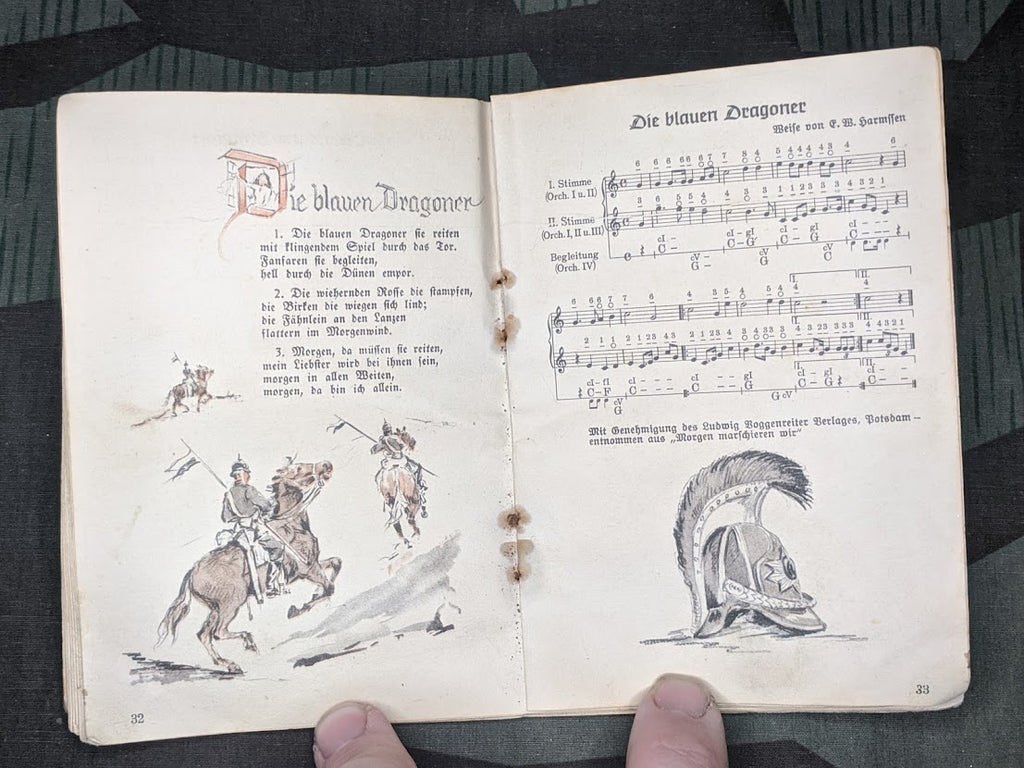 Die blauen Dragoner
1. Die blauen Dragoner sie reiten
mit klingendem Spiel durch das Tor.
Fanfaren sie begleiten,
hell durch die Dünen empor.
2. Die wiehernden Rosse sie stampfen,
die Birken die wiegen sich lind;
die Fähnlein an den Lanzen
flattern im Morgenwind.
3. Morgen, da müssen sie reiten,
mein Liebster wird bei ihnen sein,
morgen in allen Weiten,
morgen, da bin ich allein.
32
Die blauen Dragoner
Weise von E. W. Harmssen
I. Stimme
(Orch. I u. II)
II. Stimme
(Orch. I, II u. III)
Begleitung
(Orch. IV)
Mit Genehmigung des Ludwig Voggenreiter Verlages, Potsdam –
entnommen aus „Morgen marschieren wir“
33